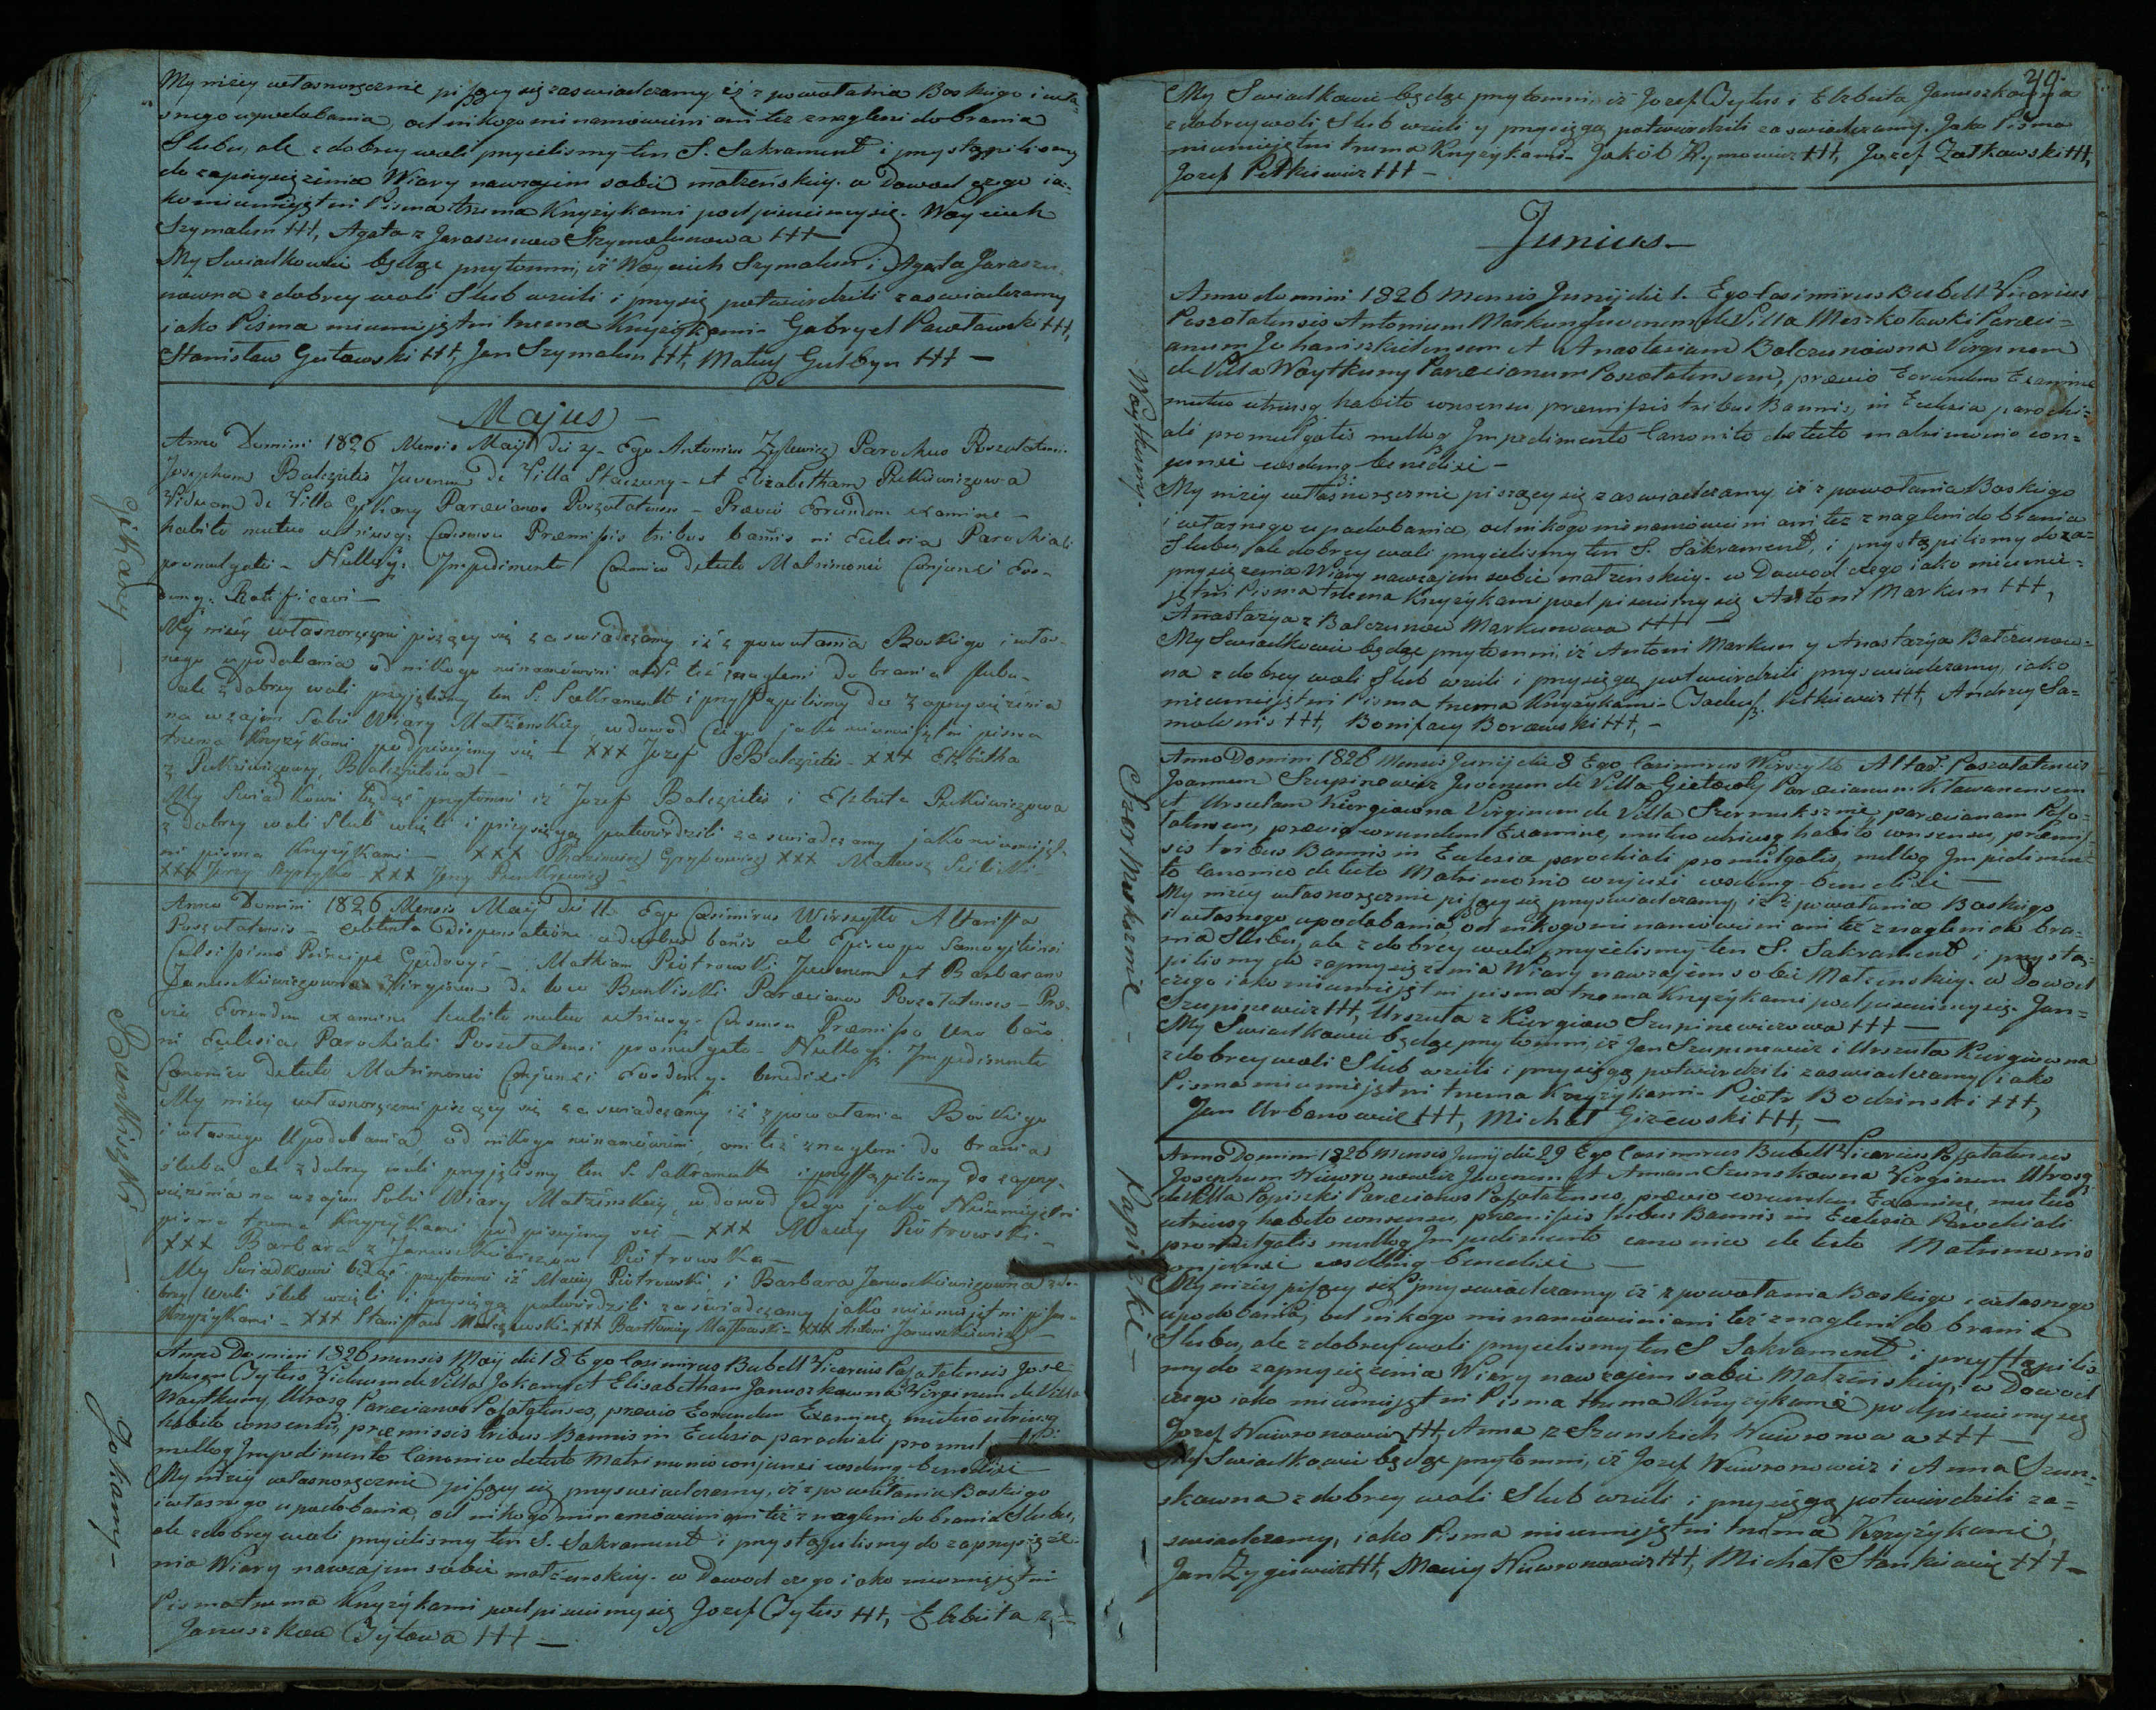 My niżey własnoręcznie piszący się zaswiadczamy, iż z powołania Boskiego i wła-
snego upodobania, od nikogo nie namówieni ani też znagleni do brania
Slubu, ale z dobrey woli przyieliśmy ten S. Sakrament i przystąpilismy
do zaprzysiężenia Wiary nawzajem sobie małżeńskiey. w Dowod czego ia-
ko nieumieiętni Pisma trzema Krzyżykami podpisuiemy się. Woyciech
Szymalun +++, Agata z Jaraszunow Szymalunowa +++ —
My Swiadkowie będąc przytomni, iż Woyciech Szymalun i Agata Jaraszu-
nowna z dobrey woli Slub wzieli i przysię potwierdzili zaswiadczamy
iako Pisma nieumieiętni trzema Krzyżykami - Gabryel Pawławski +++,
Stanisław Gustawski +++, Jan Szymalun +++, Matwey Gulbyn +++ —
Majus —
Anno Domini 1826 Mensis Maij die 2. Ego Antonius Parochus Poszołatensis
Josephum Balczytis Juvenem de Villa Staczuny - et Elizabetham Petkiewiczowa
Viduam de Villa Gikany Paræcianos Poszołatenses - Prævio Eorundem examine -
habito mutuo utriusq: Consensu Præmissis tribus bannis in Eclesia Parochiali
promulgatis - Nulloq: Impedimento Canonico detecto Matrimonio Conjunxi Eos-
demq: Ratificavi —
My niżey własnoręczni piszący się zaswiadczamy iż z powołania Boskiego i włas-
nego upodobania od nikogo nienamówieni ani też znagleni do brania slubu -
ale z dobrey woli przyjęlismy ten S. Sakrament i przystąpilismy do zaprzysiężenia
na wzajem Sobie Wiary Małżenskiey, w dowod czego jako nieumiętni pisma
trzema Krzyżykami podpisujemy się — XXX Jozef Balczytis - XXX Elżbieta
z Petkiewiczowey Balczytowa —
My Swiadkowie będąc przytomni iż Jozef Balczytis i Elżbieta Petkiewiczowa
z dobrey woli Slub wzięli i przysięgą potwierdzili zaswiadczamy jako nieumiejęt-
ni pisma Krzyżykami — XXX Kazimierz XXX Mateusz
XXX Jerzy XXX Jerzy
Anno Domini 1826 Mensis Maij die 11 Ego Casimirus Wirszyłło Altarista
Poszołatensis - obtenta Dispensatione a duobus bannis ab Episcopo Samogitiensi
Celsissimo Principe Giedroyć - Mathiam Piotrowski Juvenem et Barbaram
Januszkiewiczowna Virginem de loco Buntiszki Paræcianos Poszołatenses - Præ-
vio Eorundem examine habito mutuo utriusq: Consensu Præmisso Uno banno
in Eclesia Parochiali Poszołatensi promulgato - Nulloq: Impedimento
Canonico detecto Matrimonio Conjunxi Eosdemq: benedixi —
My niżey własnoręczni piszący się zaswiadczamy iż z powołania Boskiego
i własnego Upodobania, od nikogo nienamówieni, ani też znagleni do brania
slubu ale z dobrey woli przyjęlismy ten S. Sakrament i przystąpilismy do zaprzy-
siężenia na wzajem Sobie Wiary Małżenskiey, w dowod czego jako Nieumiejętni
pisma trzema Krzyżykami podpisujemy się — XXX Maciey Piotrowski -
XXX Barbara z Januszkiewiczow Piotrowska —
My Swiadkowie będąc przytomni iż Maciey Piotrowski i Barbara Januszkiewiczowna z do-
brey woli slub wzięli i przysięgą potwierdzili zaświadczamy jako nieumiejętni pisma
Krzyżykami - XXX Stanisław XXX Bartłomiey XXX Antoni Januszkiewicz —
Anno Domini 1826 mensis Maij die 18 Ego Casimirus Bubelt Vicarius Poszołatensis Jose-
phum Cytus Viduum de Villa Jokany et Elisabetham Januszkowna Virginem de Villa
Woytkuny Utrosq Paræcianos Poszołatenses, prævio Eorundem Examine, mutuo utriusq
habito consensu, præmissis tribus Bannis in Ecclesia parochiali promul
nulloq Impedimento Canonico detecto Matrimonio conjunxi eosdemq benedixi
My niżey własnoręcznie piszący się przyswiadczamy, iż z powołania Boskiego
i własnego upodobania, od nikogo nienamówieni ani też znagleni do brania Slubu,
ale z dobrey woli przyieliśmy ten S. Sakrament i przystąpilismy do zaprzysięże-
nia Wiary nawzajem sobie małżeńskiey. w Dowod czego iako nieumieiętni
Pisma trzema Krzyżykami podpisuiemy się Jozef Cytus +++, Elżbieta z
Januszkow Cytowa +++ —
Gikany —
Buntiszki —
Jokany —
49.
My Swiadkowie będąc przytomni, iż Jozef Cytus i Elżbieta Januszkowna
z dobrey woli Slub wzieli y przysięgą potwierdzili zaswiadczamy. Jako Pisma
nieumieiętni trzema Krzyżykami - Jakób Rymowicz +++, Jozef Zatkowski +++,
Jozef Petkiewicz +++ —
Junius —
Anno domini 1826 mensis Junij die 1. Ego Casimirus Bubelt Vicarius
Poszołatensis Antonium Markun Juvenem de Villa Meszkotawki Paræci-
anum Johaniszkielensem et Anastasiam Balczunowna Virginem
de Villa Woytkuny Paræcianam Poszołatensem, prævio Eorundem Examine
mutuo utriusq habito consensu præmissis tribus Bannis, in Ecclesia parochi-
ali promulgatis nulloq Impedimento Canonico detecto matrimonio con-
junxi eosdemq benedixi —
My niżey własnoręcznie piszący się zaswiadczamy, iż z powołania Boskiego
i własnego upodobania, od nikogo nienamówieni ani też znagleni do brania
Slubu, ale dobrey woli przyieliśmy ten S. Sakrament, i przystąpilismy do za-
przysiężenia Wiary nawzajem sobie małżeńskiey. w Dowod czego iako nieumie-
iętni Pisma trzema Krzyżykami podpisuiemy się Antoni Markun +++,
Anastazya z Balczunow Markunowa +++ —
My Swiadkowie będąc przytomni, iż Antoni Markun y Anastazya Balczunow-
na z dobrey woli Slub wzieli i przysięgą potwierdzili przyswiadczamy, iako
nieumieiętni Pisma trzema Krzyżykami - Tadeusz Petkiewicz +++, Andrzey Sa-
malunis +++, Bonifacy Borawski +++, —
Anno Domini 1826 Mensis Junij die 8 Ego Casimirus Wirszyłło Altar: Poszołatensis
Joannem Szupinewicz Juvenem de Villa Gietowty Paræcianum Kławanensem
et Ursulam Kiurgiowna Virginem de Villa Szermuksznie, paræcianam Poszo-
łatensem, prævio eorundem Examine, mutuo utriusq habito consensu, præmis-
sis tribus Bannis in Ecclesia parochiali promulgatis, nulloq Impedimen-
to Canonico detecto Matrimonio conjunxi eosdemq benedixi —
My niżey własnoręcznie piszący się przyswiadczamy, iż z powołania Boskiego
i własnego upodobania, od nikogo nienamówieni ani też znagleni do bra-
nia Slubu, ale z dobrey woli przyieliśmy ten S. Sakrament i przystą-
pilismy do zaprzysiężenia Wiary nawzajem sobie Małżenskiey. w Dowod
czego iako nieumieiętni pisma trzema Krzyżykami podpisuiemy się. Jan
Szupinewicz +++, Urszula z Kiurgiow Szupinewiczowa +++ —
My Swiadkowie będąc przytomni, iż Jan Szupinewicz i Urszula Kiurgiowna
z dobrey woli Slub wzieli i przysięgą potwierdzili zaswiadczamy iako
Pisma nieumieiętni trzema Krzyżykami - Piotr Bodzinski +++,
Jan Urbanowicz +++, Michał Giżewski +++, —
Anno Domini 1826 Mensis Junij die 29 Ego Casimirus Bubelt Vicarius Poszołatensis
Josephum Niewronowicz Juvenem et Annam Szunskowna Virginem Utrosq
de Villa Papiszki Paræcianos Poszołatenses, prævio eorundem Examine, mutuo
utriusq habito consensu, præmissis tribus Bannis in Ecclesia Parochiali
promulgatis nulloq Impedimento canonico detecto Matrimonio
conjunxi eosdemq benedixi —
My niżey piszący się przyswiadczamy, iż z powołania Boskiego i własnego
upodobania, od nikogo nienamówieni ani też znagleni do brania
Slubu, ale z dobrey woli przyieliśmy ten S Sakrament i przystąpilis-
my do zaprzysiężenia Wiary nawzajem sobie Małżeńskiey, w Dowod
czego iako nieumieiętni Pisma trzema Krzyżykami podpisuiemy się
Jozef Niewronowicz +++, Anna z Szunskich Niewronowa +++ —
My Swiadkowie będąc przytomni, iż Jozef Niewronowicz i Anna Szun-
skowna z dobrey woli Slub wzieli i przysięgą potwierdzili za-
swiadczamy, iako Pisma nieumieiętni trzema Krzyżykami,
Jan Zygiewicz +++, Maciey Niewronowicz +++, Michał Stankiewicz +++ —
Woytkuny.
Szermuksznie —
Papiszki —